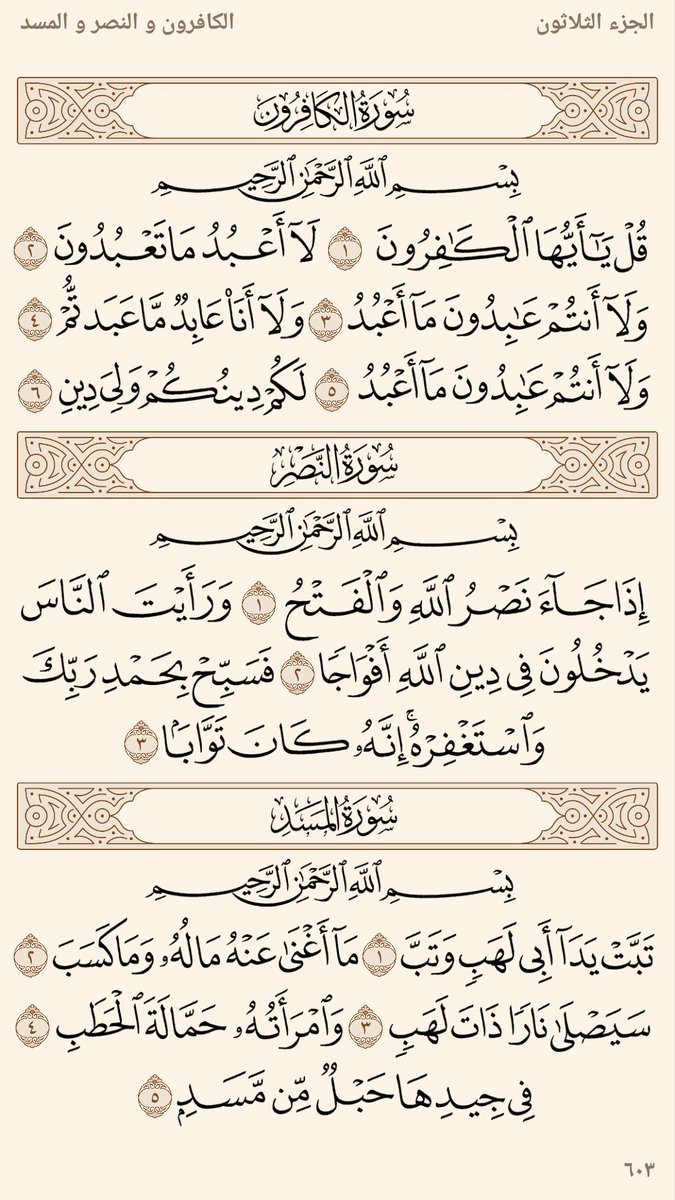 الجزء الثلاثون
الكافرون و النصر و المسد
سُورَةُ الكَافِرُونَ
بِسْمِ ٱللَّهِ ٱلرَّحْمَٰنِ ٱلرَّحِيمِ
قُلْ يَـٰٓأَيُّهَا ٱلْكَـٰفِرُونَ ١ لَآ أَعْبُدُ مَا تَعْبُدُونَ ٢
وَلَآ أَنتُمْ عَـٰبِدُونَ مَآ أَعْبُدُ ٣ وَلَآ أَنَا۠ عَابِدٌ مَّا عَبَدتُّمْ ٤
وَلَآ أَنتُمْ عَـٰبِدُونَ مَآ أَعْبُدُ ٥ لَكُمْ دِينُكُمْ وَلِىَ دِينِ ٦
سُورَةُ النَّصْرِ
بِسْمِ ٱللَّهِ ٱلرَّحْمَٰنِ ٱلرَّحِيمِ
إِذَا جَآءَ نَصْرُ ٱللَّهِ وَٱلْفَتْحُ ١ وَرَأَيْتَ ٱلنَّاسَ
يَدْخُلُونَ فِى دِينِ ٱللَّهِ أَفْوَاجًا ٢ فَسَبِّحْ بِحَمْدِ رَبِّكَ
وَٱسْتَغْفِرْهُ ۚ إِنَّهُۥ كَانَ تَوَّابًۢا ٣
سُورَةُ المَسَدِ
بِسْمِ ٱللَّهِ ٱلرَّحْمَٰنِ ٱلرَّحِيمِ
تَبَّتْ يَدَآ أَبِى لَهَبٍ وَتَبَّ ١ مَآ أَغْنَىٰ عَنْهُ مَالُهُۥ وَمَا كَسَبَ ٢
سَيَصْلَىٰ نَارًا ذَاتَ لَهَبٍ ٣ وَٱمْرَأَتُهُۥ حَمَّالَةَ ٱلْحَطَبِ ٤
فِى جِيدِهَا حَبْلٌ مِّن مَّسَدٍۭ ٥
٦٠٣